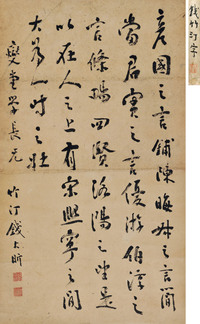 錢竹汀字
彥國之言鋪陳晦叔之言簡
當君實之言優游伯淳之
言條暢四賢洛陽之望是
以在人之上有宋熙寧之間
大為一時之壯
堂學長兄
竹汀錢大昕